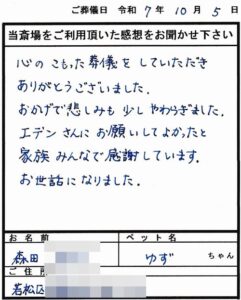 ご葬儀日 令和 7年 10月 5日
当斎場をご利用頂いた感想をお聞かせ下さい
心のこもった葬儀をしていただき
ありがとうございました。
おかげで悲しみも少しやわらぎました。
エデンさんにお願いしてよかったと
家族みんなで感謝しています。
お世話になりました。
お名前
ペット名
森田
ゆず ちゃん
ご住所
若松区